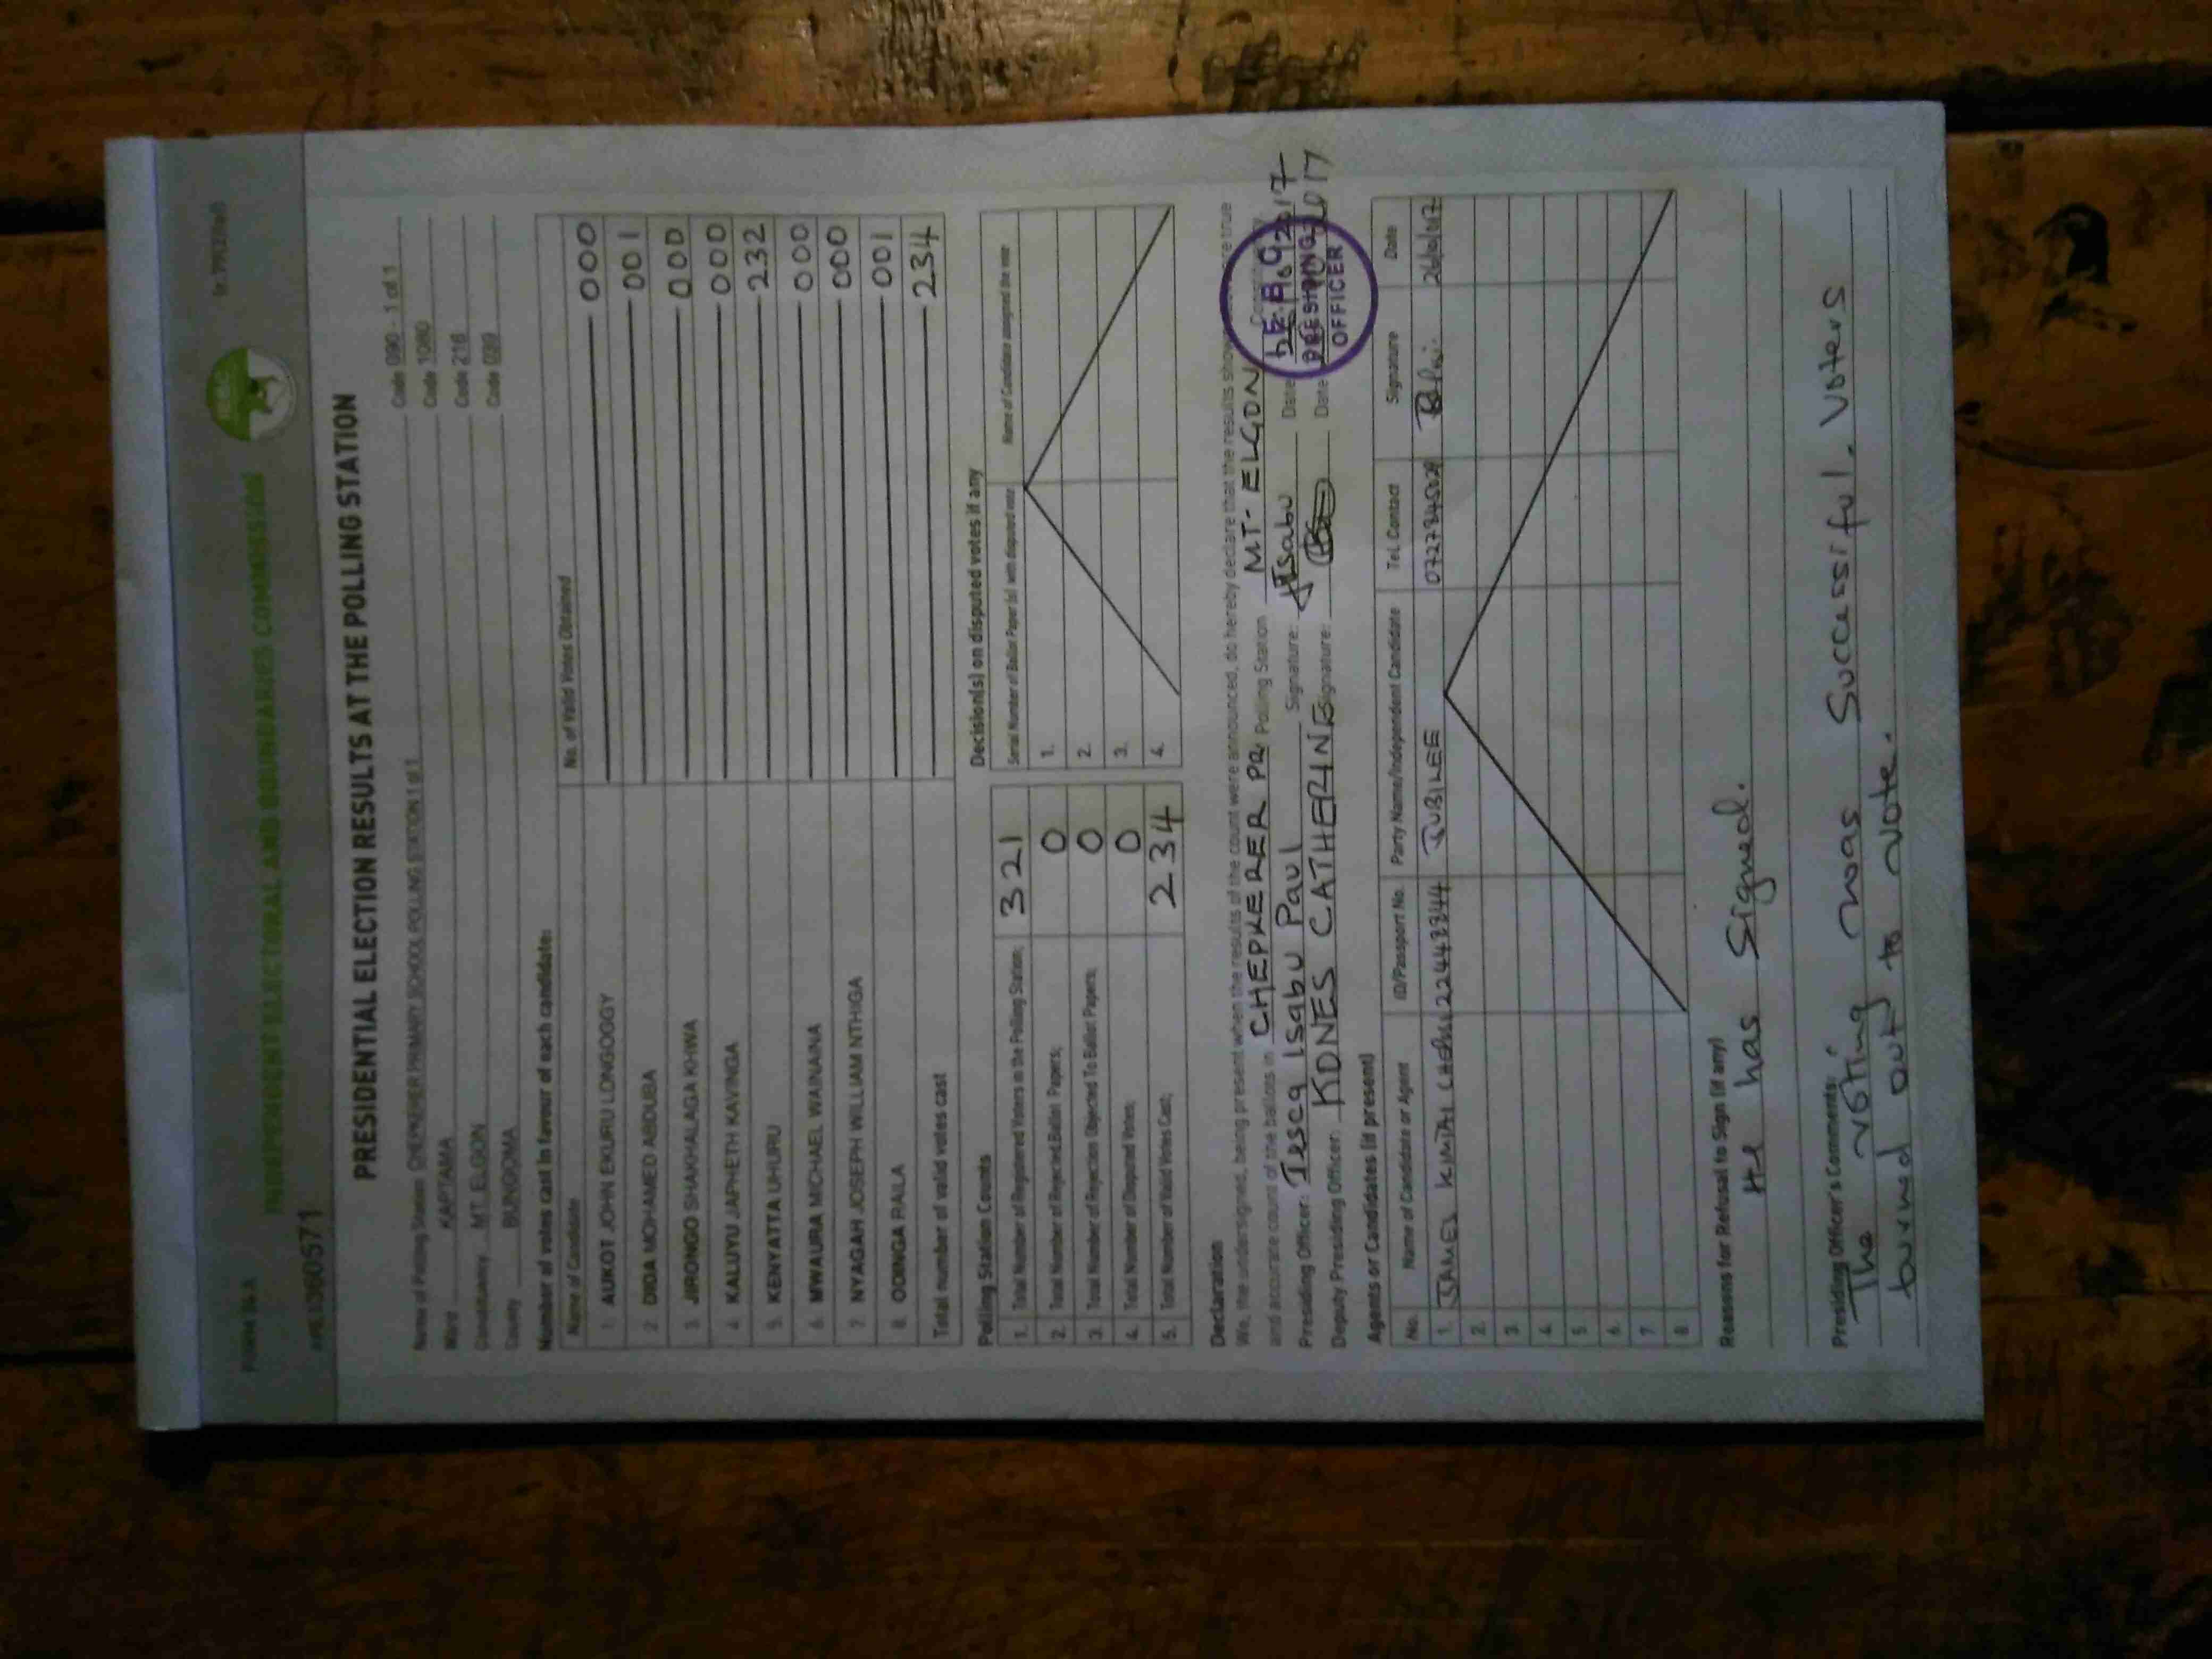 FORM 34A
INDEPENDENT ELECTORAL AND BOUNDARIES COMMISSION
PRESIDENTIAL ELECTION RESULTS AT THE POLLING STATION
Name of Polling Station CHEPKERER PRIMARY SCHOOL POLLING STATION 1 of 1 Code 090 - 1 of 1
Ward KAPTAMA Code 1080
Constituency MT. ELGON Code 216
County BUNGOMA Code 039
Number of votes cast in favour of each candidate:
Name of Candidate No. of Valid Votes Obtained
1. AUKOT JOHN EKURU LONGOGGY 000
2. DIDA MOHAMED ABDUBA 001
3. JIRONGO SHAKHALAGA KHWA 000
4. KALUYU JAPHETH KAVINGA 000
5. KENYATTA UHURU 232
6. MWAURA MICHAEL WAINAINA 000
7. NYAGAH JOSEPH WILLIAM NTHIGA 000
8. ODINGA RAILA 001
Total number of valid votes cast 234
Polling Station Counts
1. Total Number of Registered Voters in the Polling Station; 321
2. Total Number of Rejected Ballot Papers; 0
3. Total Number of Rejection Objected To Ballot Papers; 0
4. Total Number of Disputed Votes; 0
5. Total Number of Valid Votes Cast; 234
Decision(s) on disputed votes if any
Serial Number of Ballot Paper (s) with disputed vote Name of Candidate assigned the vote
1.
2.
3.
4.
Declaration
We, the undersigned, being present when the results of the count were announced, do hereby declare that the results show true
and accurate count of the ballots in CHEPKERER PR. Polling Station MT- ELGON
Presiding Officer: Jesca Isabu Paul Signature: Isabu Date
Deputy Presiding Officer: KONES CATHERINE Signature: Date 2017
PRESIDING
OFFICER
Agents or Candidates (if present)
No. Name of Candidate or Agent ID/Passport No. Party Name/Independent Candidate Tel. Contact Signature Date
1. JUBILEE
2.
3.
4.
5.
6.
7.
8
Reasons for Refusal to Sign (if any)
He has Signed.
Presiding Officer's Comments:
The voting was Successful. Voters
turned out to vote.